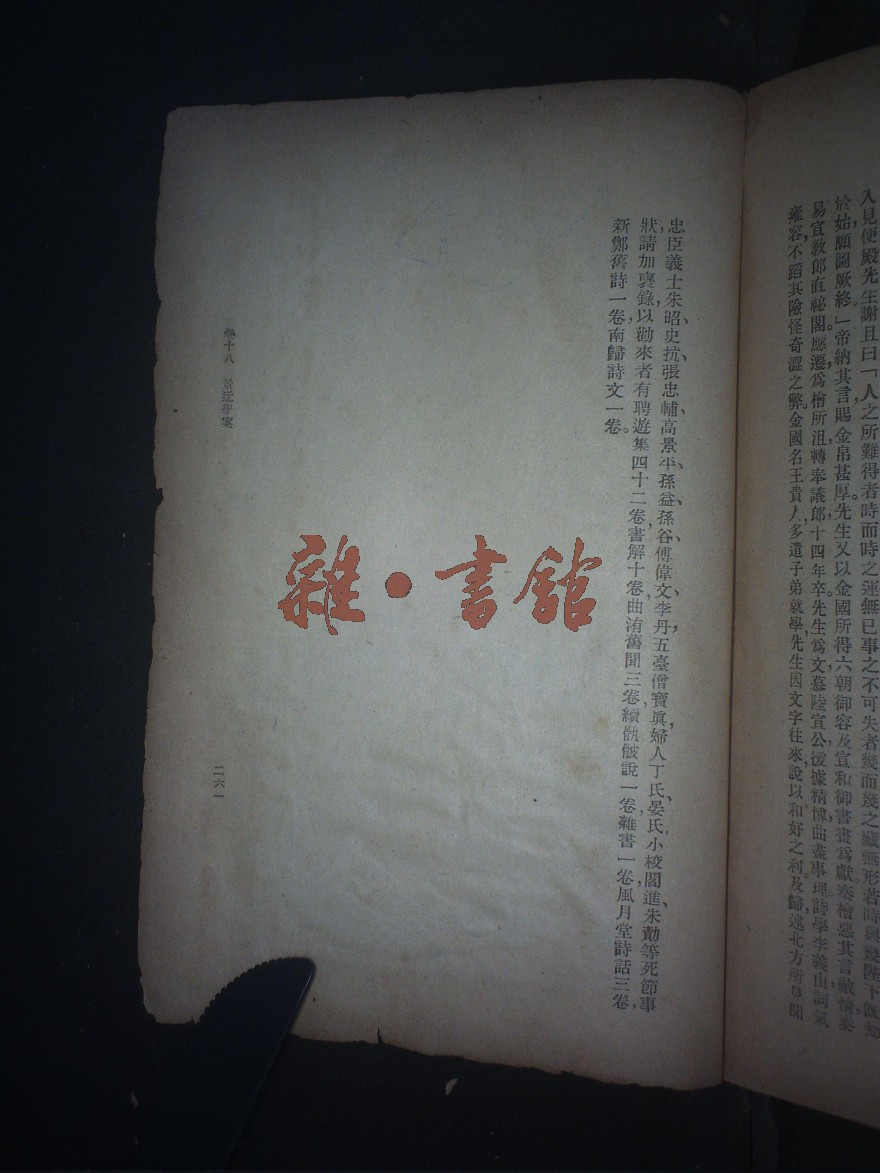 入見便殿先生謝且曰「人之所難得者時而時之運無已事之不可失者幾而幾之藏無形若時與幾陛下既知
於始願圖厥終」帝納其言賜金帛甚厚先生又以金國所得六朝御容及宣和御書畫爲獻秦檜惡其言敵情奏
易宣教郎直祕閣應遷爲檜所沮轉奉議郎十四年卒先生爲文慕陸宣公援據精博曲盡事理詩學李義山詞氣
雍容不蹈其險怪奇澀之弊金國名王貴人多遣子弟就學先生因文字往來說以和好之利及歸述北方所見聞
忠臣義士朱昭、史抗、張忠輔、高景平、孫益、孫谷、傅偉文、李丹、五臺僧寶眞、婦人丁氏、晏氏、小校閻進、朱勣等死節事
狀請加襃錄以勸來者有聘遊集四十二卷書解十卷曲洧舊聞三卷續骫骳說一卷雜書一卷風月堂詩話三卷,
新鄭舊詩一卷,南歸詩文一卷。
卷十八 景迂學案
二六一
雜•書館